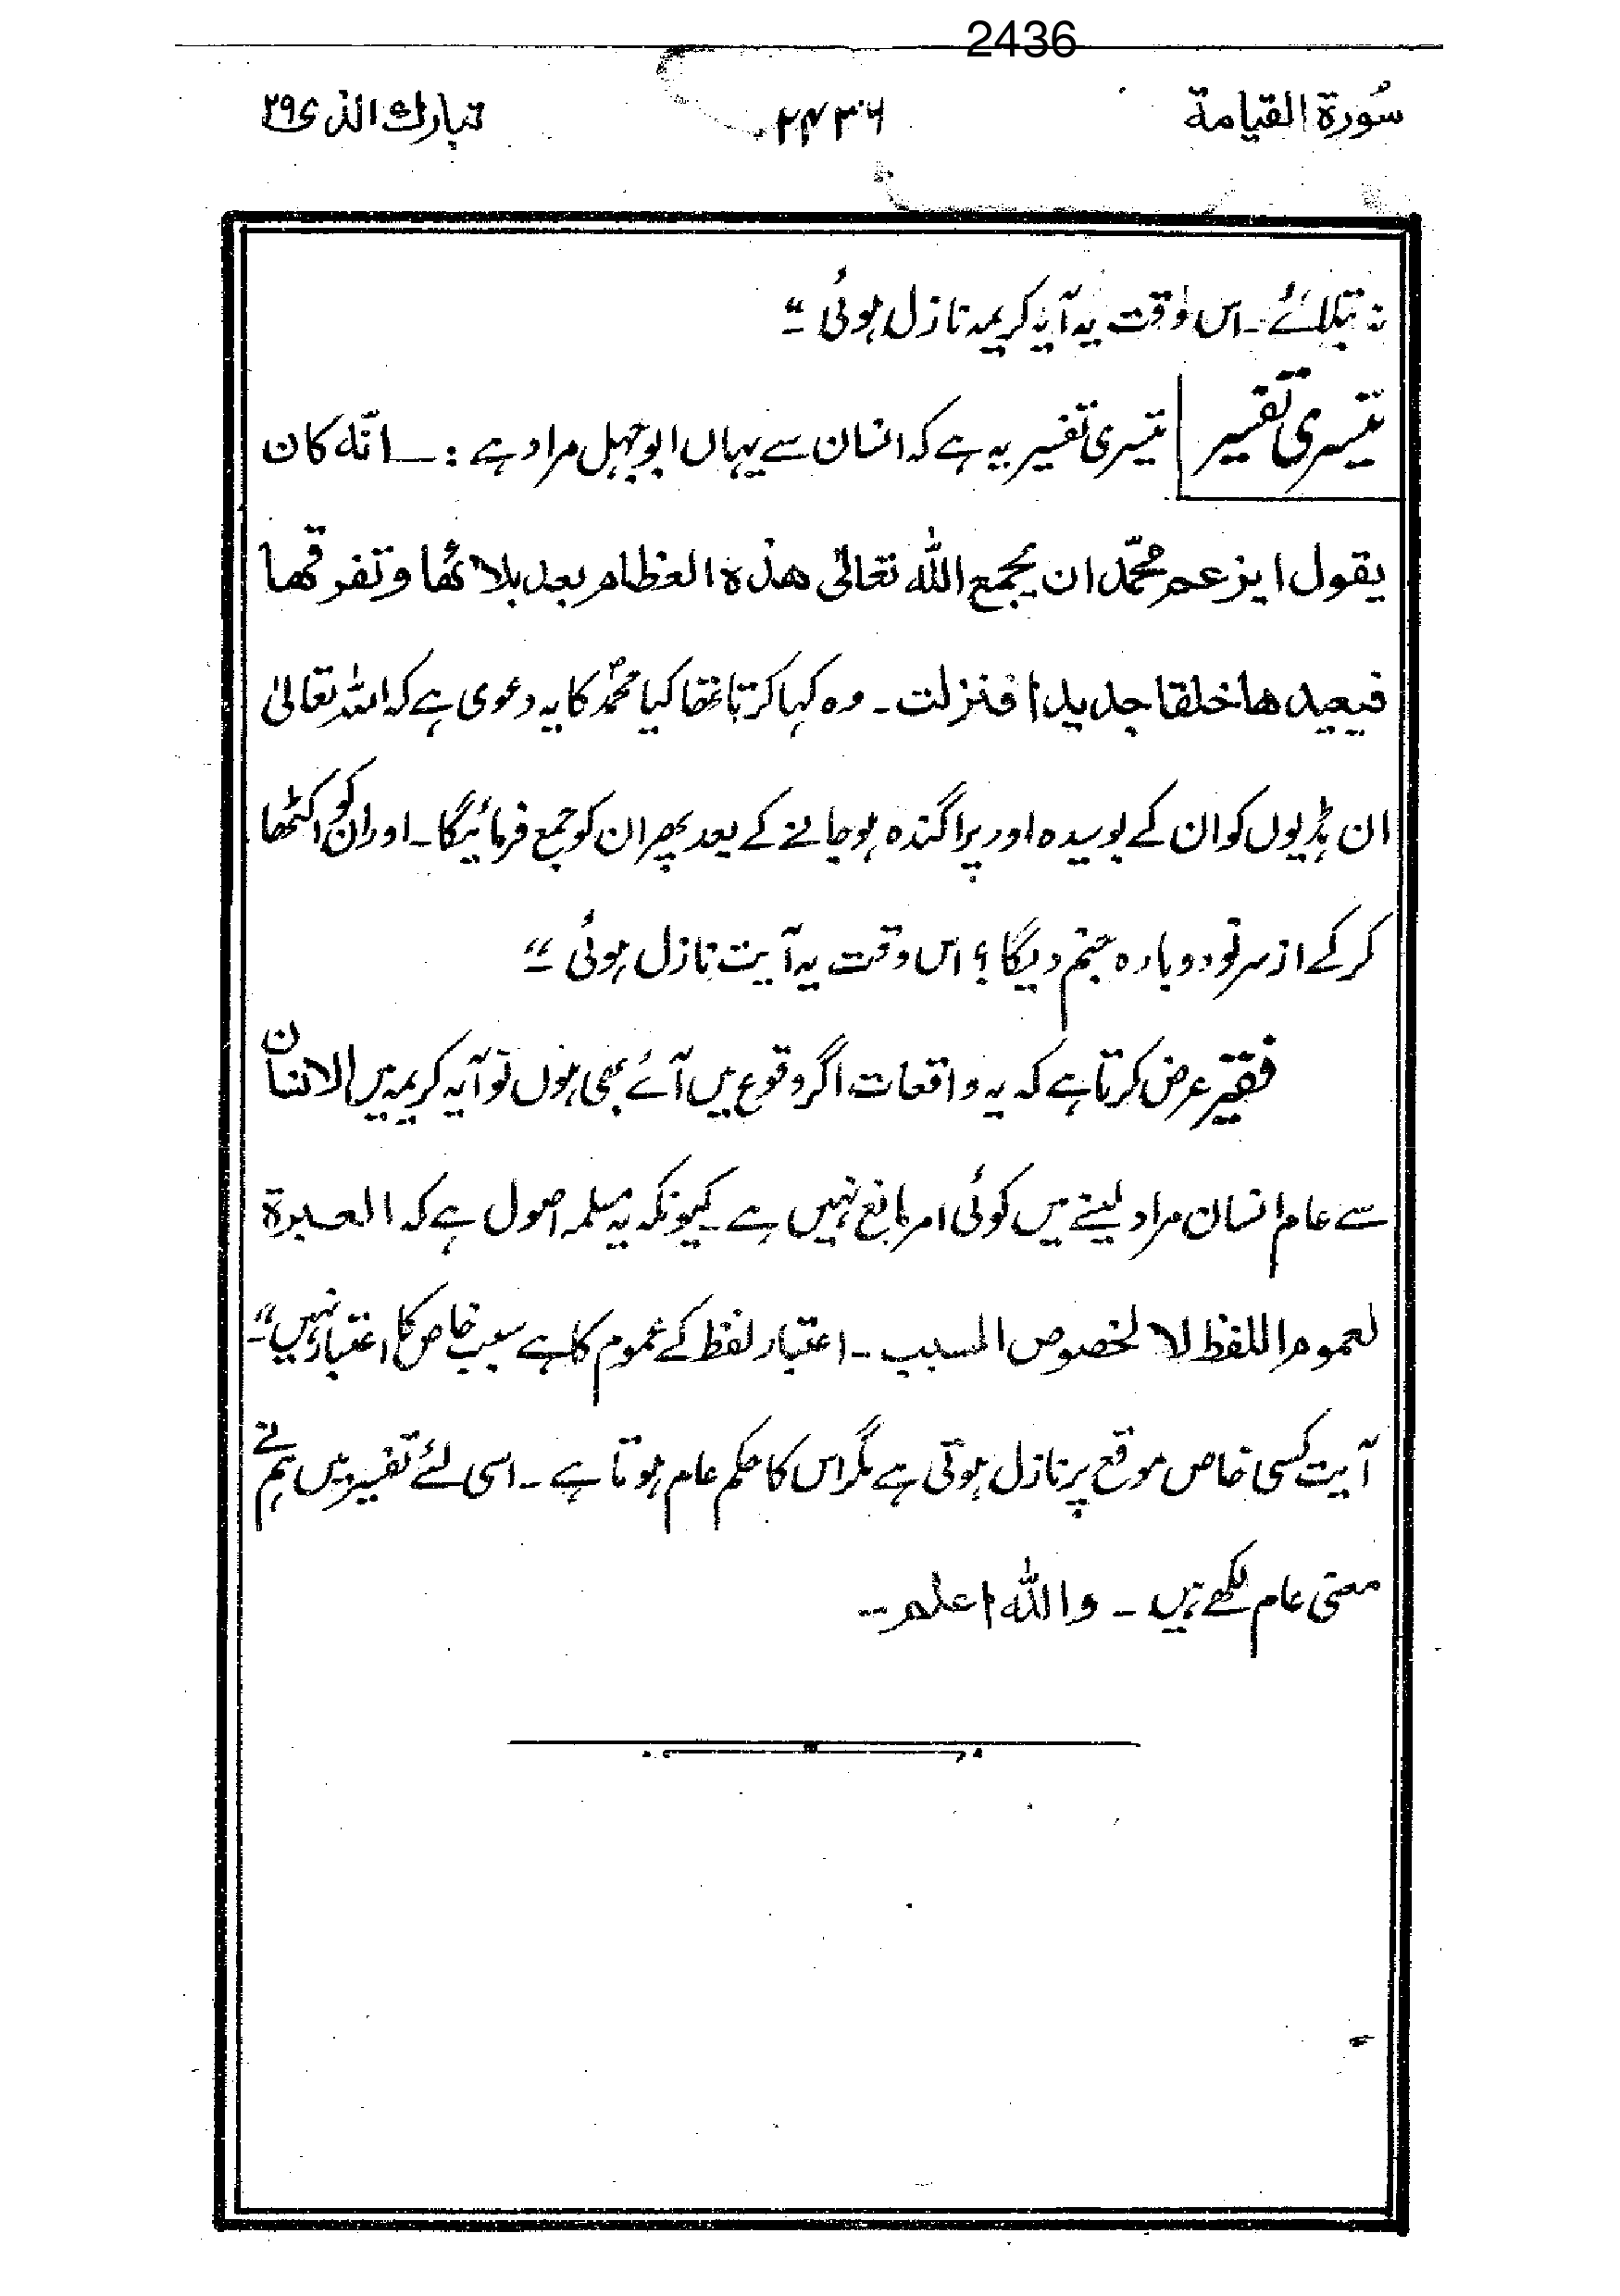 2436
سُورة القیامة ۲۴۳۶ تبارك الذی ۲۹
نہ بتلائے۔ اس وقت یہ آیہ کریمہ نازل ہوئی ؔ"
تیسری تفسیر تیسری تفسیر یہ ہے کہ انسان سے یہاں ابوجہل مراد ہے :۔ انّه کان
یقول ایزعم محمّد ان یجمع الله تعالیٰ هذه العظام بعد بلائها وتفرقها
فیعیدها خلقا جدیدا فنزلت ۔ وہ کہا کرتا تھا کیا محمدؐ کا یہ دعوی ہے کہ اللہ تعالیٰ
ان ہڈیوں کو ان کے بوسیدہ اور پراگندہ ہو جانے کے بعد پھر ان کو جمع فرمائیگا۔ اور ان کو اکٹھا
کر کے از سر نو دوبارہ جنم دیگا ؟ اس وقت یہ آیت نازل ہوئی "
فقیر عرض کرتا ہے کہ یہ واقعات اگر وقوع میں آئے بھی ہوں تو آیہ کریمہ میں الانسان
سے عام انسان مراد لینے میں کوئی امر مانع نہیں ہے۔ کیونکہ یہ مسلمہ اصول ہے کہ العبرة
لعموم اللفظ لا لخصوص السبب ۔ اعتبار لفظ کے عموم کا ہے سبب خاص کا اعتبار نہیں"
آیت کسی خاص موقع پر نازل ہوتی ہے مگر اس کا حکم عام ہوتا ہے ۔ اسی لئے تفسیر میں ہم نے
معنی عام لکھے ہیں ۔ والله اعلم ۔۔